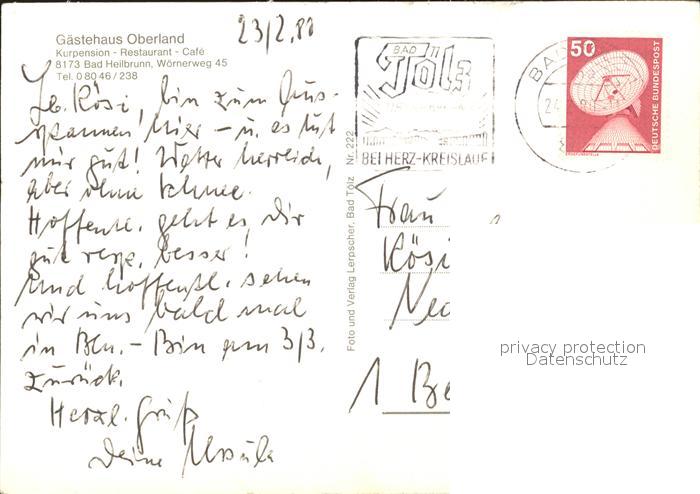 Gästehaus Oberland
Kurpension - Restaurant - Café
8173 Bad Heilbrunn, Wörnerweg 45
Tel. 0 80 46 / 238
23/2.80
Lb. Rösi, bin zum Aus-
spannen hier – u. es tut
mir gut! Wetter herrlich,
aber ohne Schnee.
Hoffentl. geht es Dir
gut resp. besser!
Und hoffentl. sehen
wir uns bald mal
in Bln. – Bin am 3/3.
zurück.
Herzl. Gruß
Deine Ursula
Foto und Verlag Lerpscher, Bad Tölz Nr. 222
BAD
Tölz
BEI HERZ-KREISLAUF
BA
24
50
DEUTSCHE BUNDESPOST
ERDFUNKSTELLE
Frau
Rösi
1 Be
privacy protection
Datenschutz